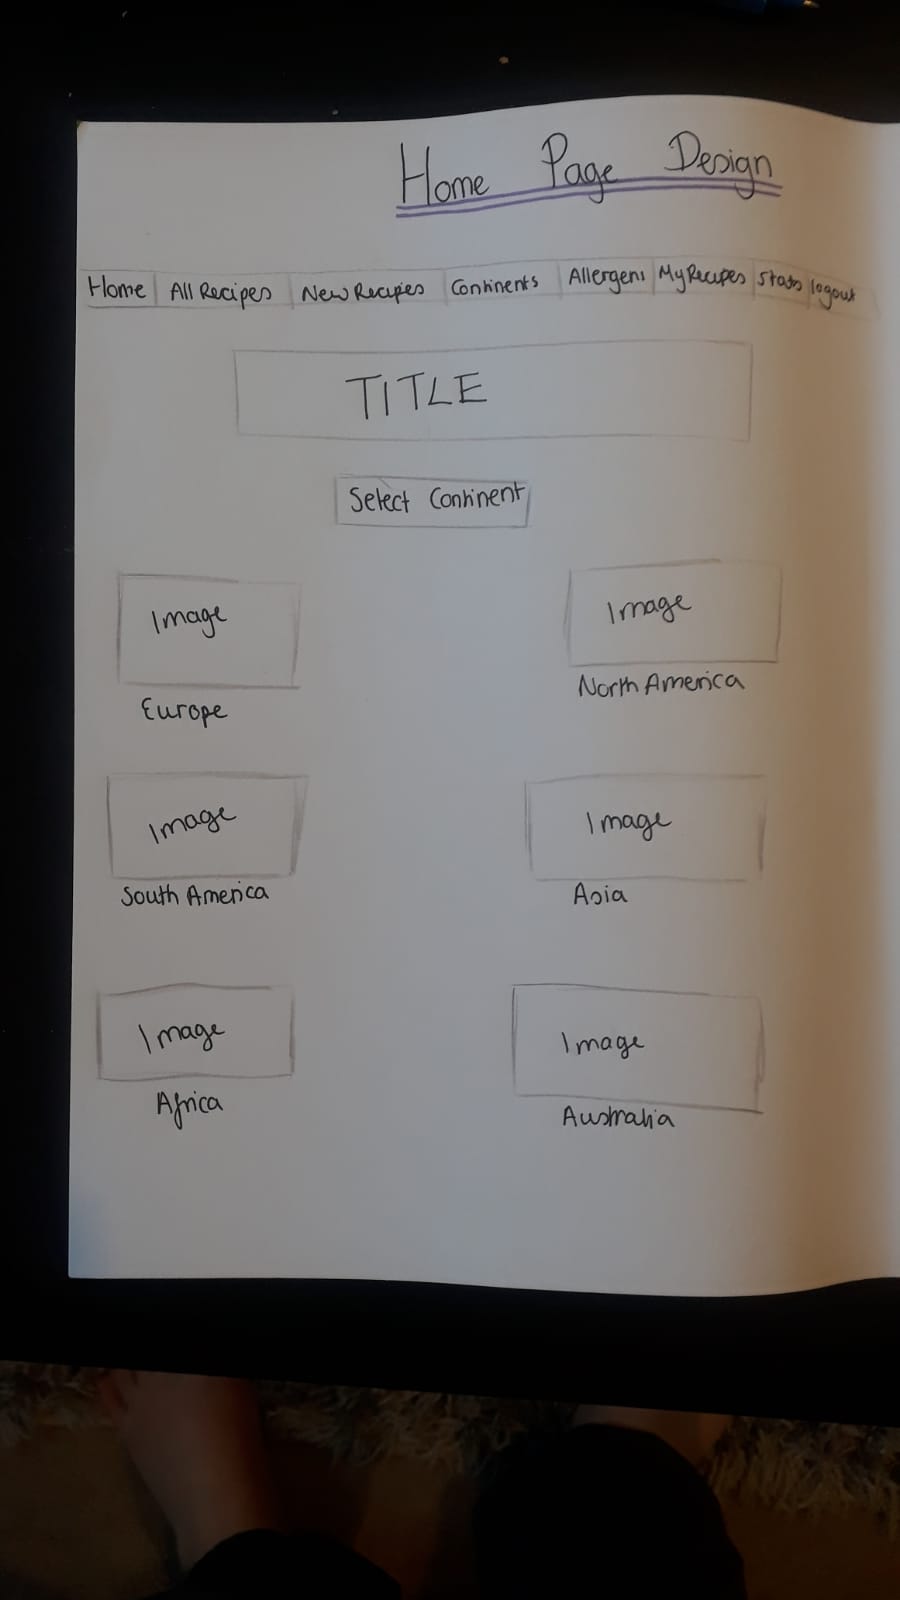 Home Page Design
Home All Recipes New Recipes Continents Allergens My Recipes Stats logout
TITLE
Select Continent
Image Image
Europe North America
Image Image
South America Asia
Image Image
Africa Australia